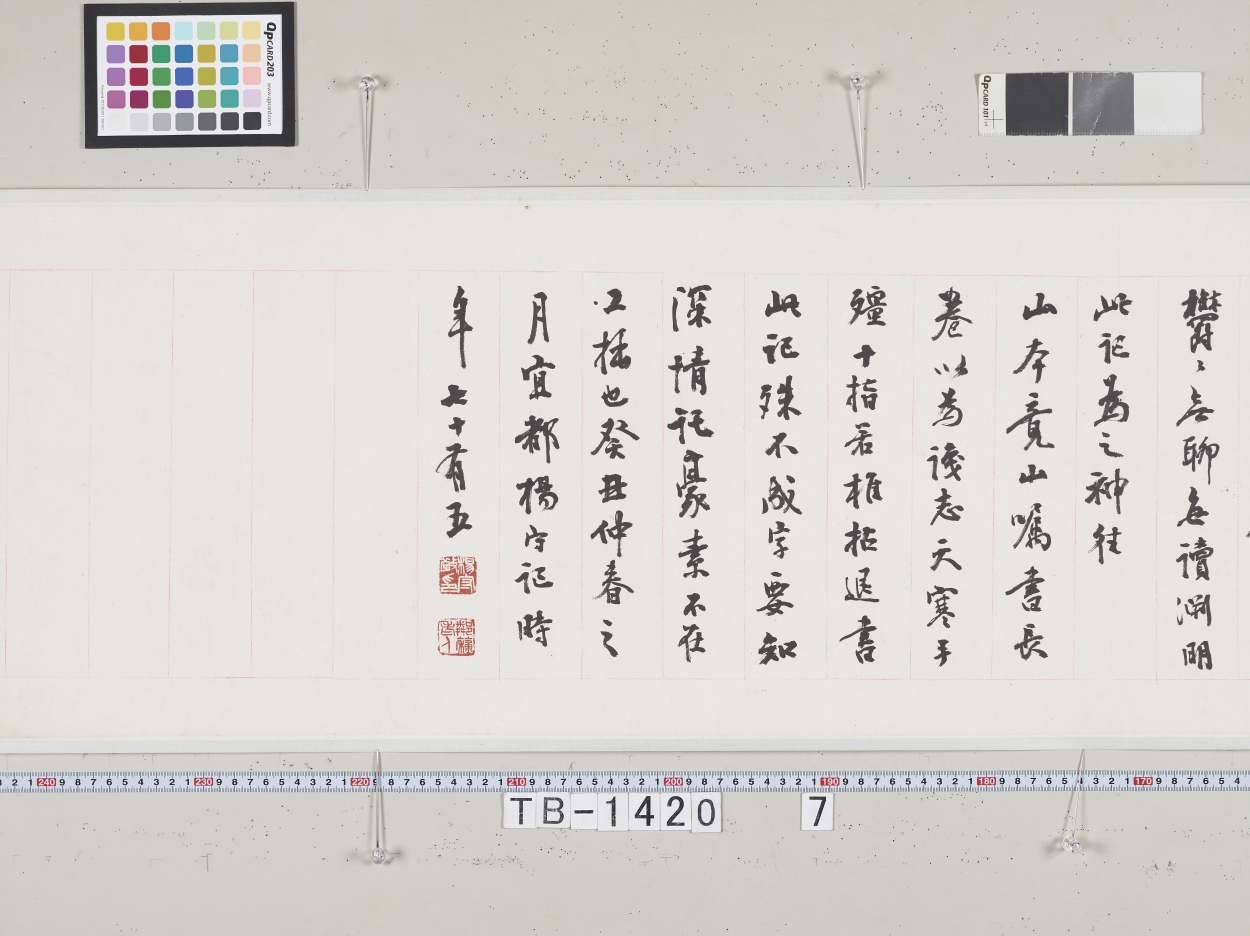 欝〻無聊每讀淵明
此記爲之神往
山本竟山嘱書長
卷以爲識志天寒手
殭十指若椎拈退書
此記殊不成字要知
深情託豪素不在
工拙也癸丑仲春之
月宜都楊守記時
年七十有五
QPCARD 203
www.qpcard.com
QPCARD 101
TB-1420 7